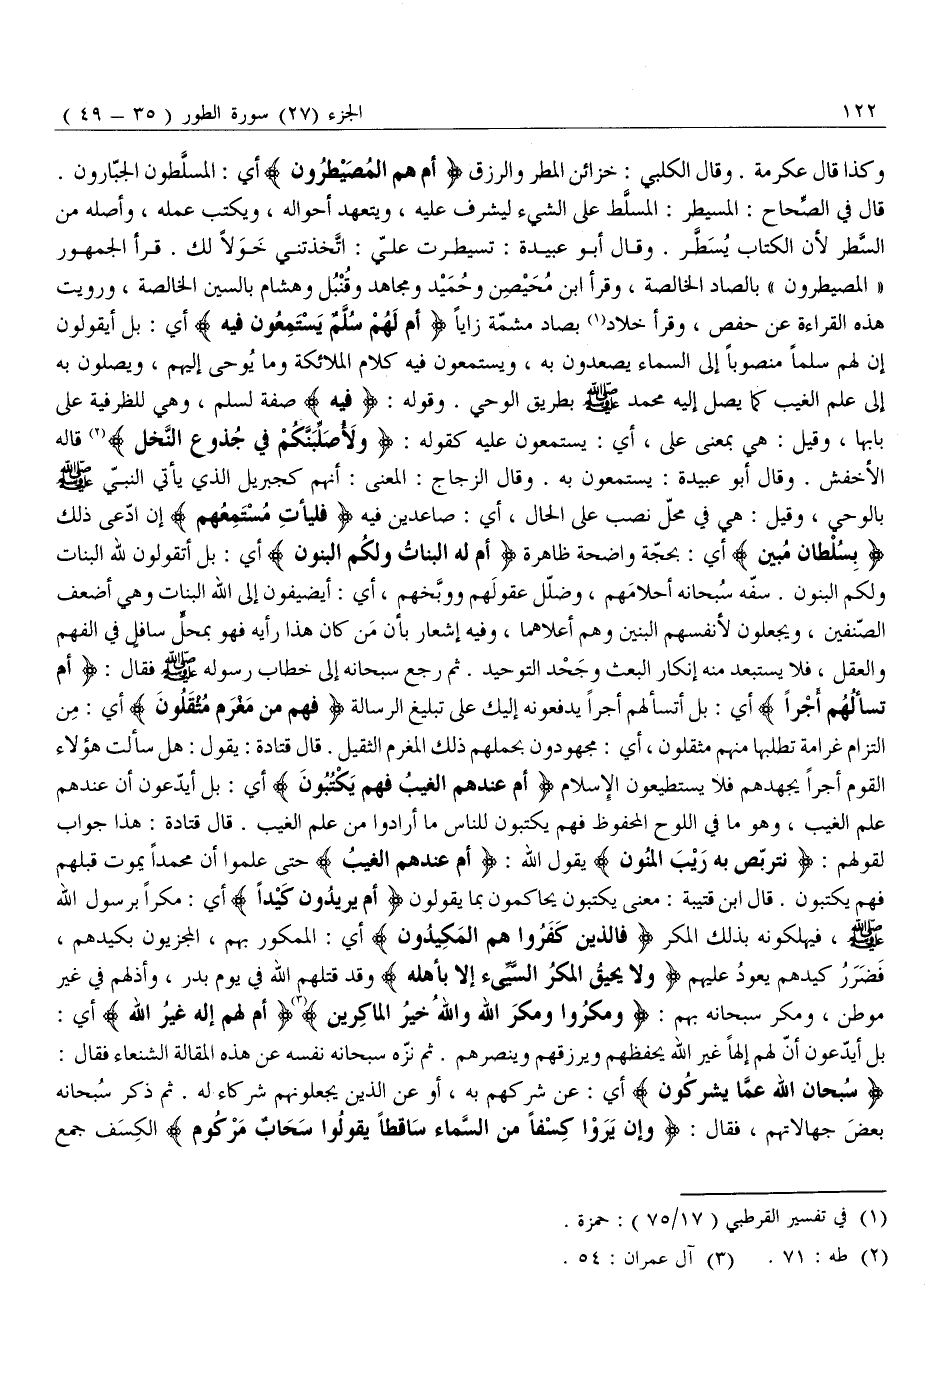 ١٢٢ الجزء (٢٧) سورة الطور ( ٣٥ – ٤٩ )
وكذا قال عكرمة . وقال الكلبي : خزائن المطر والرزق ﴿ أم هم المُصَيْطِرُون ﴾ أي : المسلَّطون الجبّارون .
قال في الصِّحاح : المسيطر : المسلَّط على الشيء ليشرف عليه ، ويتعهد أحواله ، ويكتب عمله ، وأصله من
السَّطر لأن الكتاب يُسَطَّر . وقال أبو عبيدة : تسيطرت عليّ : اتَّخذتني خَوَلاً لك . قرأ الجمهور
« المصيطرون » بالصاد الخالصة ، وقرأ ابن مُحَيْصِن وحُمَيْد ومجاهد وقُنْبُل وهشام بالسين الخالصة ، ورويت
هذه القراءة عن حفص ، وقرأ خلاد(١) بصاد مشمّة زاياً ﴿ أم لَهُمْ سُلَّمٌ يَسْتَمِعُون فيه ﴾ أي : بل أيقولون
إن لهم سلماً منصوباً إلى السماء يصعدون به ، ويستمعون فيه كلام الملائكة وما يُوحى إليهم ، ويصلون به
إلى علم الغيب كما يصل إليه محمد ﷺ بطريق الوحي . وقوله : ﴿ فيه ﴾ صفة لسلم ، وهي للظرفية على
بابها ، وقيل : هي بمعنى على ، أي : يستمعون عليه كقوله : ﴿ ولَأُصَلِّبَنَّكُمْ في جُذوع النَّخل ﴾(٢) قاله
الأخفش . وقال أبو عبيدة : يستمعون به . وقال الزجاج : المعنى : أنهم كجبريل الذي يأتي النبيّ ﷺ
بالوحي ، وقيل : هي في محلّ نصب على الحال ، أي : صاعدين فيه ﴿ فليأتِ مُسْتَمِعُهم ﴾ إن ادّعى ذلك
﴿ بِسُلْطان مُبين ﴾ أي : بحجّة واضحة ظاهرة ﴿ أم له البناتُ ولكم البنون ﴾ أي : بل أتقولون لله البنات
ولكم البنون . سفّه سُبحانه أحلامَهم ، وضلّل عقولَهم ووبَّخهم ، أي : أيضيفون إلى الله البنات وهي أضعف
الصّنفين ، ويجعلون لأنفسهم البنين وهم أعلاهما ، وفيه إشعار بأن مَن كان هذا رأيه فهو بمحلٍّ سافلٍ في الفهم
والعقل ، فلا يستبعد منه إنكار البعث وجَحْد التوحيد . ثم رجع سبحانه إلى خطاب رسوله ﷺ فقال : ﴿ أم
تسألُهُم أَجْراً ﴾ أي : بل أتسألهم أجراً يدفعونه إليك على تبليغ الرسالة ﴿ فهم من مَغْرَم مُثْقَلُونَ ﴾ أي : مِن
التزام غرامة تطلبها منهم مثقلون ، أي : مجهودون بحملهم ذلك المغرم الثقيل . قال قتادة : يقول : هل سألت هؤلاء
القوم أجراً يجهدهم فلا يستطيعون الإسلام ﴿ أم عندهم الغيبُ فهم يَكْتُبُونَ ﴾ أي : بل أيدّعون أن عندهم
علم الغيب ، وهو ما في اللوح المحفوظ فهم يكتبون للناس ما أرادوا من علم الغيب . قال قتادة : هذا جواب
لقولهم : ﴿ نتربّص به رَيْبَ المَنُون ﴾ يقول الله : ﴿ أم عندهم الغيبُ ﴾ حتى علموا أن محمداً يموت قبلهم
فهم يكتبون . قال ابن قتيبة : معنى يكتبون يحاكمون بما يقولون ﴿ أم يريدُون كَيْداً ﴾ أي : مكراً برسول الله
ﷺ ، فيهلكونه بذلك المكر ﴿ فالذين كَفَرُوا هم المَكِيدُون ﴾ أي : الممكور بهم ، المجزيون بكيدهم ،
فَضَرَرُ كيدهم يعودُ عليهم ﴿ ولا يحيقُ المكرُ السَّيِّىء إلا بأهله ﴾ وقد قتلهم الله في يوم بدر ، وأذلهم في غير
موطن ، ومكر سبحانه بهم : ﴿ ومكَرُوا ومكرَ الله واللهُ خيرُ الماكِرين ﴾(٣) ﴿ أم لهم إله غيرُ الله ﴾ أي :
بل أيدّعون أنّ لهم إلهاً غير الله يحفظهم ويرزقهم وينصرهم . ثم نزّه سبحانه نفسه عن هذه المقالة الشنعاء فقال :
﴿ سُبحان الله عمَّا يشركُون ﴾ أي : عن شركهم به ، أو عن الذين يجعلونهم شركاء له . ثم ذكر سُبحانه
بعضَ جهالاتهم ، فقال : ﴿ وإن يَرَوْا كِسْفاً من السَّماء سَاقطاً يقولُوا سَحَابٌ مَرْكُوم ﴾ الكِسَف جمع
(١) في تفسير القرطبي ( ٧٥/١٧ ) : حمزة .
(٢) طه : ٧١ . (٣) آل عمران : ٥٤ .